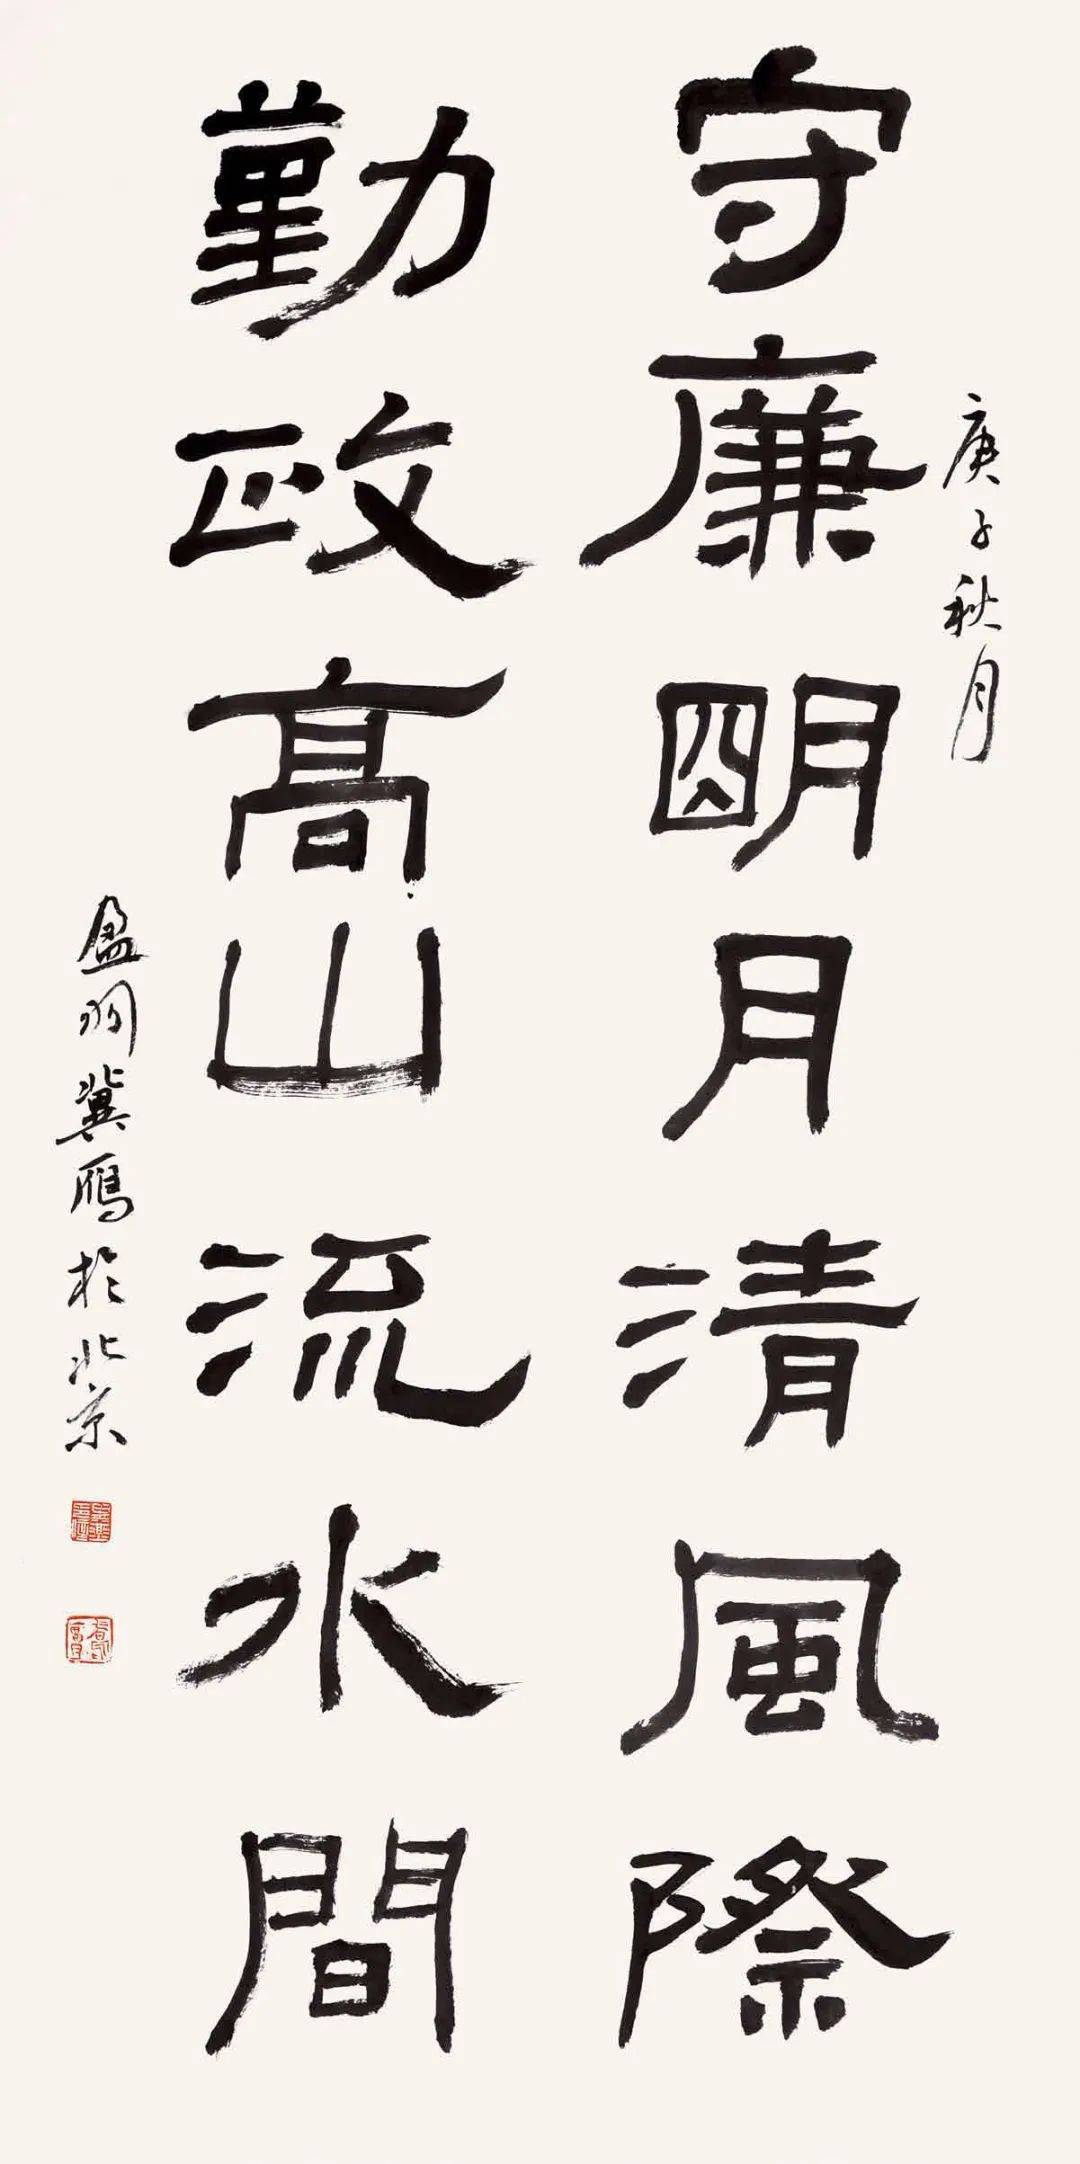 庚子秋月
守廉明月清風際
勤政高山流水間
盈羽冀雁於北京